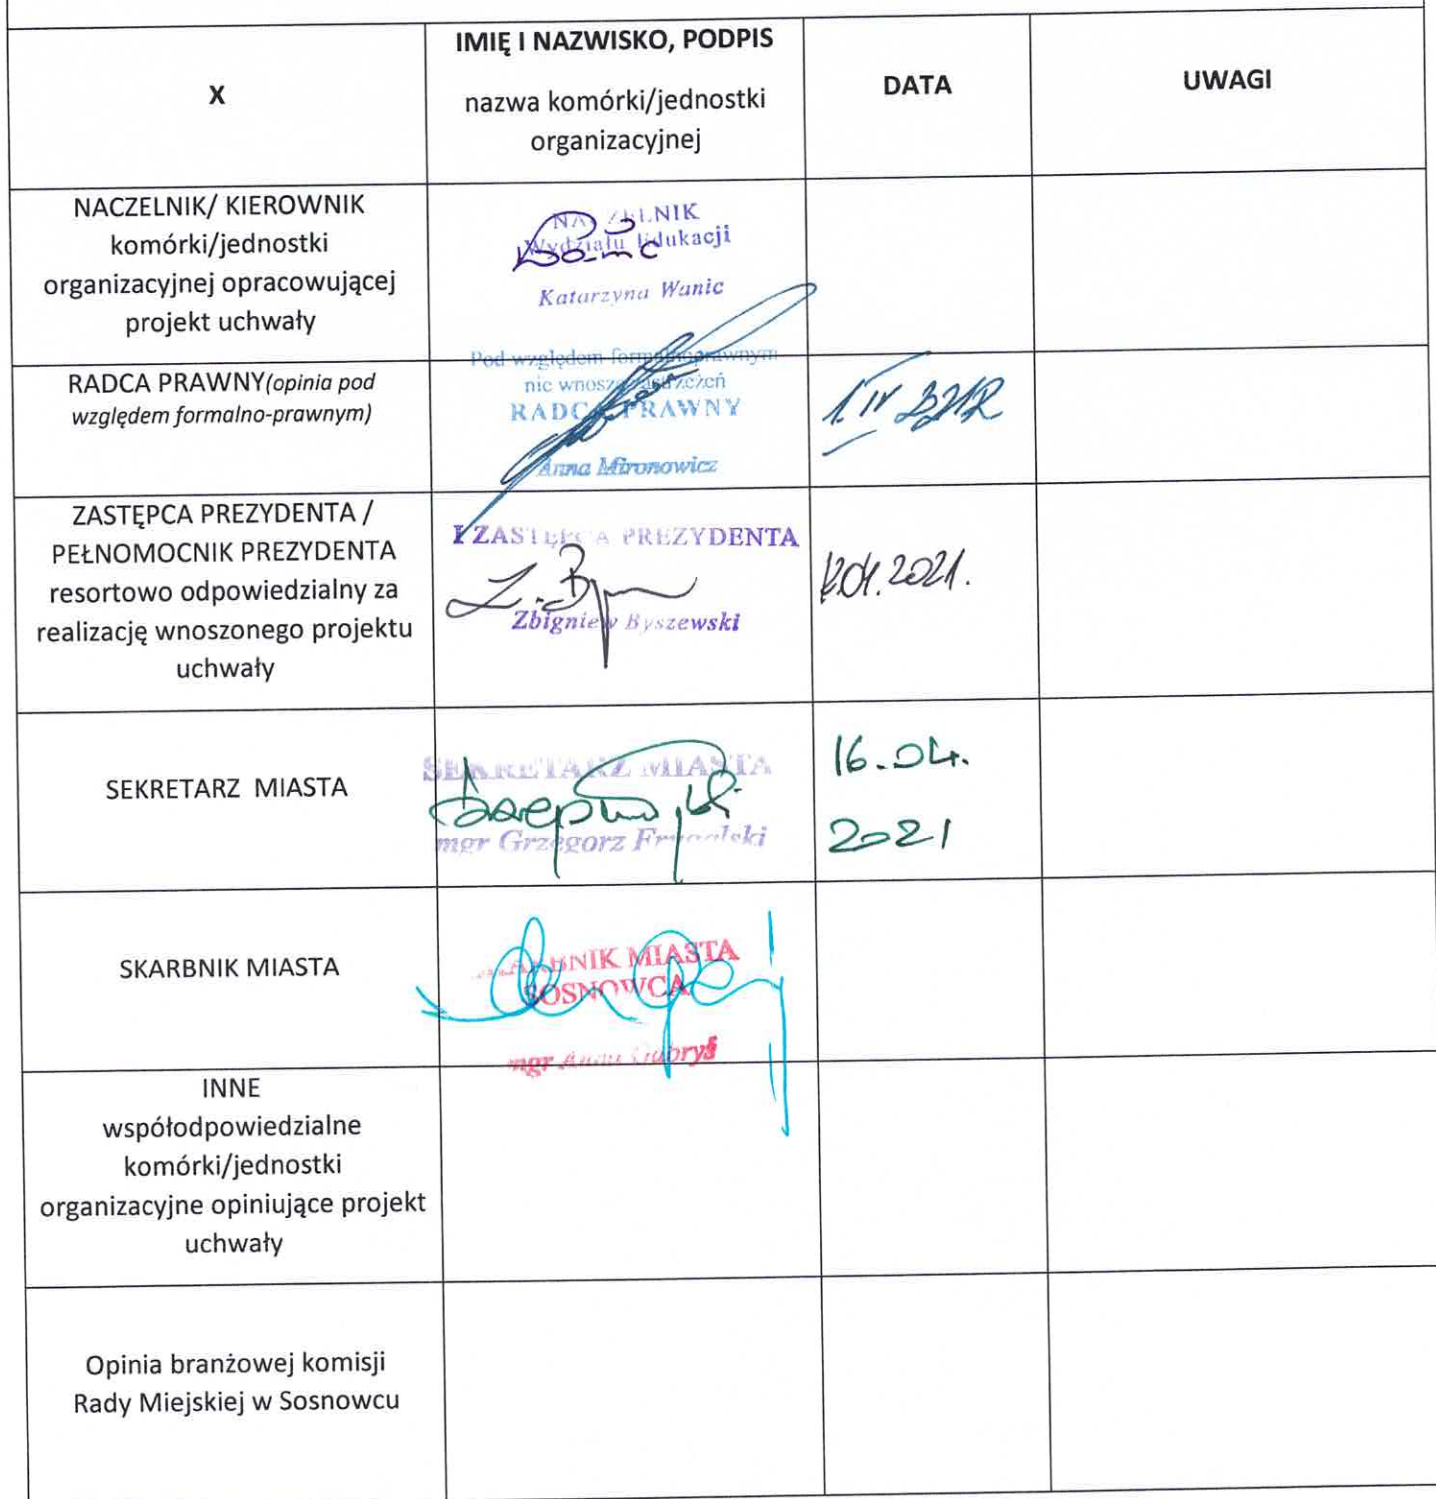 X
IMIĘ I NAZWISKO, PODPIS
nazwa komórki/jednostki
organizacyjnej
DATA
UWAGI
NACZELNIK/ KIEROWNIK
komórki/jednostki
organizacyjnej opracowującej
projekt uchwały
NACZELNIK
Wydziału Edukacji
Katarzyna Wanic
RADCA PRAWNY(opinia pod
względem formalno-prawnym)
Pod względem formalnoprawnym
nie wnoszę zastrzeżeń
RADCA PRAWNY
Anna Mironowicz
ZASTĘPCA PREZYDENTA /
PEŁNOMOCNIK PREZYDENTA
resortowo odpowiedzialny za
realizację wnoszonego projektu
uchwały
I ZASTĘPCA PREZYDENTA
Zbigniew Byszewski
2021.
SEKRETARZ MIASTA
SEKRETARZ MIASTA
mgr Grzegorz
16.04.
2021
SKARBNIK MIASTA
SKARBNIK MIASTA
SOSNOWCA
mgr Anna Gabryś
INNE
współodpowiedzialne
komórki/jednostki
organizacyjne opiniujące projekt
uchwały
Opinia branżowej komisji
Rady Miejskiej w Sosnowcu